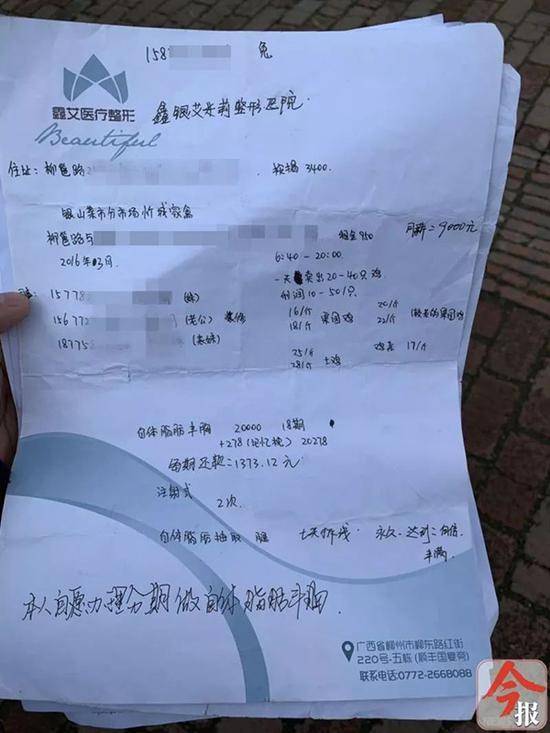 158
兔
鑫艾医疗整形
Beautiful
鑫银艾米莉整形医院
住址: 柳邕路2
按揭 3400
银山菜市分市场
柳邕路与
租金950
月薪=9000元
2016年03月
6:40-20:00
一天卖出20-40只鸡
利润10-50/只
15778 (妹)
156772 (老公) 装修
18775 (表妹)
16/斤 果园鸡 20/斤
18/斤 22/斤
17/斤
25/斤 土鸡
28/斤
自体脂肪丰胸 20000 18期
+278(记忆枕) 20278
每期还款=1373.12元
注射式
2次
自体脂肪抽取 腿 七天拆线 永久 达到=自信
丰满
本人自愿办理分期做自体脂肪丰胸.
广西省柳州市柳东路红街
220号-五栋 (顺丰国宴旁)
联系电话:0772-2668088
今报